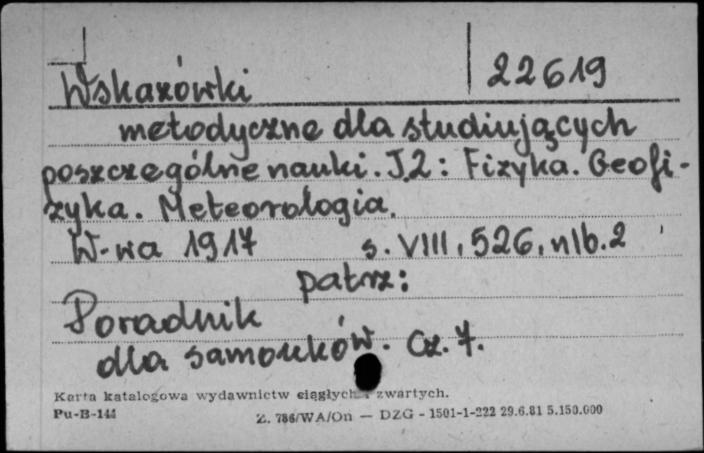 Wskazówki 22619
metodyczne dla studiujących
poszczególne nauki. T.2: Fizyka. Geofi-
zyka. Meteorologia.
W-wa 1917 s. VIII, 526, nlb. 2
patrz:
Poradnik
dla samouków. Cz. 7.
Karta katalogowa wydawnictw ciągłych i zwartych.
Pu-B-144 Z. 786/WA/On — DZG - 1501-1-222 29.6.81 5.150.000